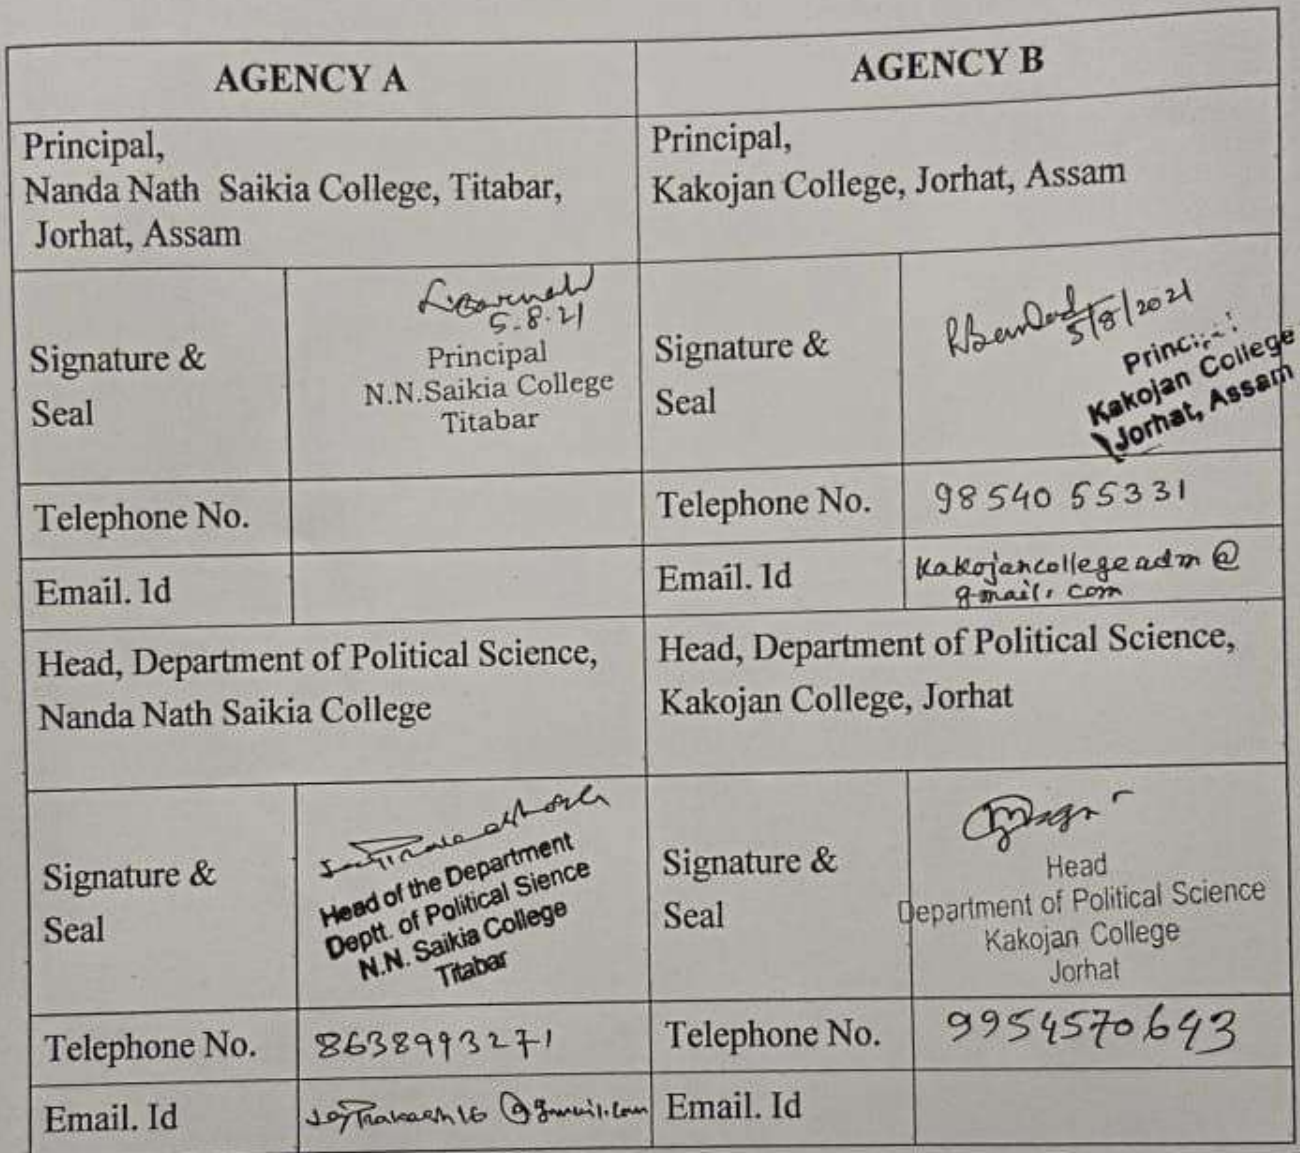 AGENCY A
AGENCY B
Principal,
Nanda Nath Saikia College, Titabar,
Jorhat, Assam
Principal,
Kakojan College, Jorhat, Assam
Signature &
Seal
5.8.21
Principal
N.N.Saikia College
Titabar
Signature &
Seal
5/8/2021
Principal
Kakojan College
Jorhat, Assam
Telephone No.
Telephone No.
98540 55331
Email. Id
Email. Id
Kakojancollegeadm@
gmail.com
Head, Department of Political Science,
Nanda Nath Saikia College
Head, Department of Political Science,
Kakojan College, Jorhat
Signature &
Seal
Head of the Department
Deptt. of Political Sience
N.N. Saikia College
Titabar
Signature &
Seal
Head
Department of Political Science
Kakojan College
Jorhat
Telephone No.
8638993271
Telephone No.
9954570643
Email. Id
Email. Id